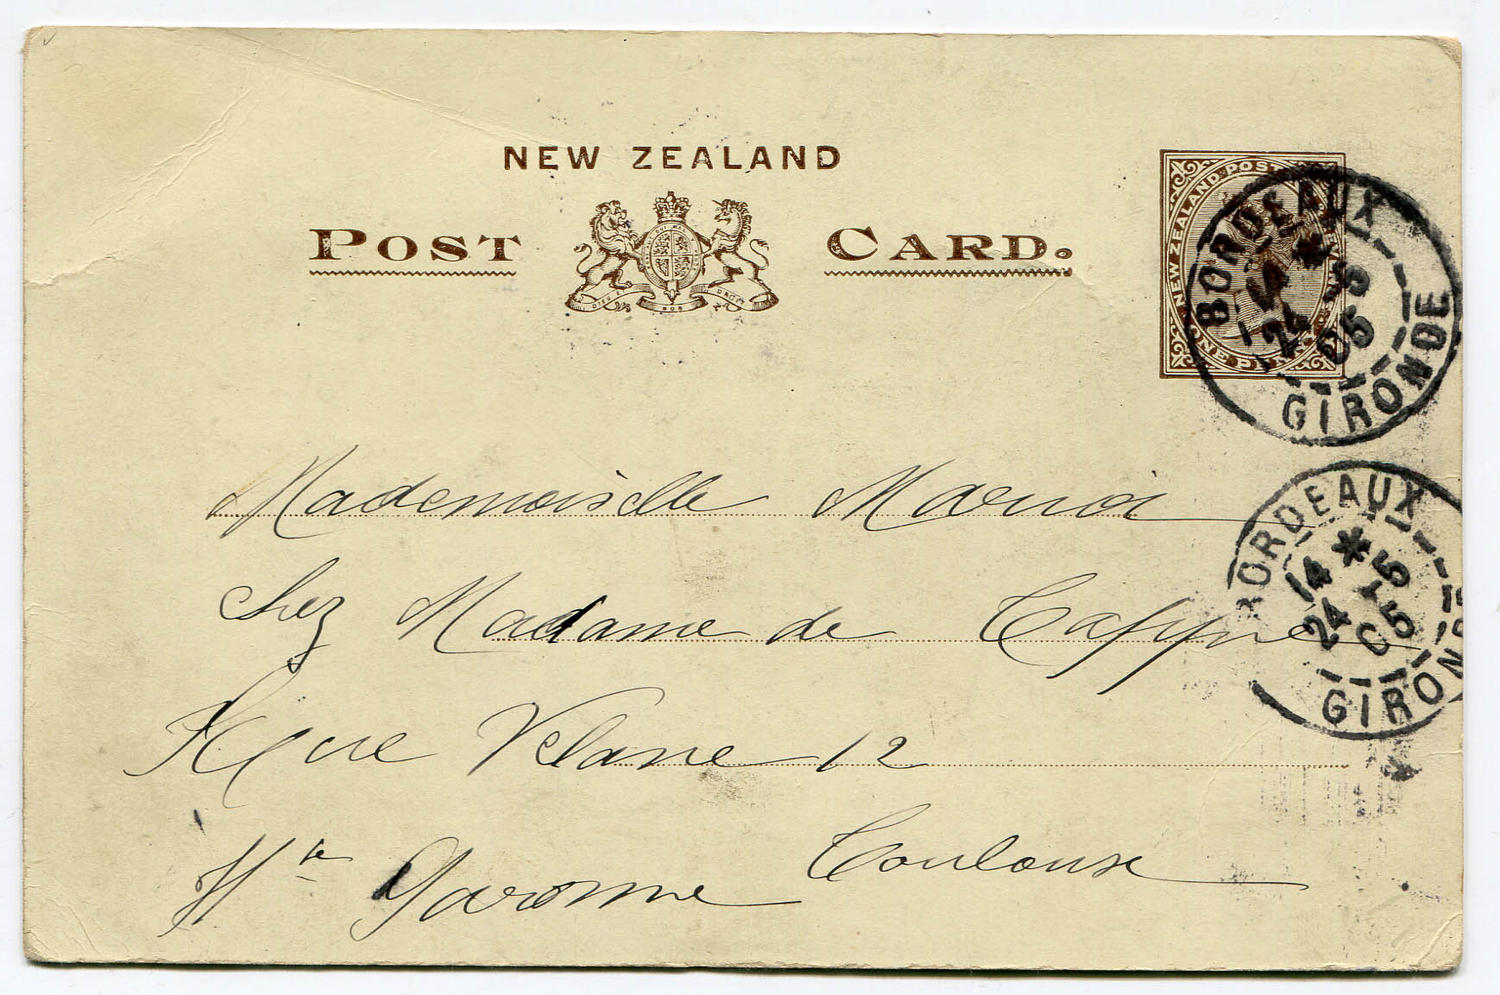 NEW ZEALAND
POST CARD.
DIEU ET MON DROIT
NEW ZEALAND POST
ONE PENNY
BORDEAUX
14 * 5
24 05
GIRONDE
Mademoiselle
BORDEAUX
14 * 5
24 05
GIRONDE
chez Madame de
Rue Velane 12
Toulouse
Hte Garonne